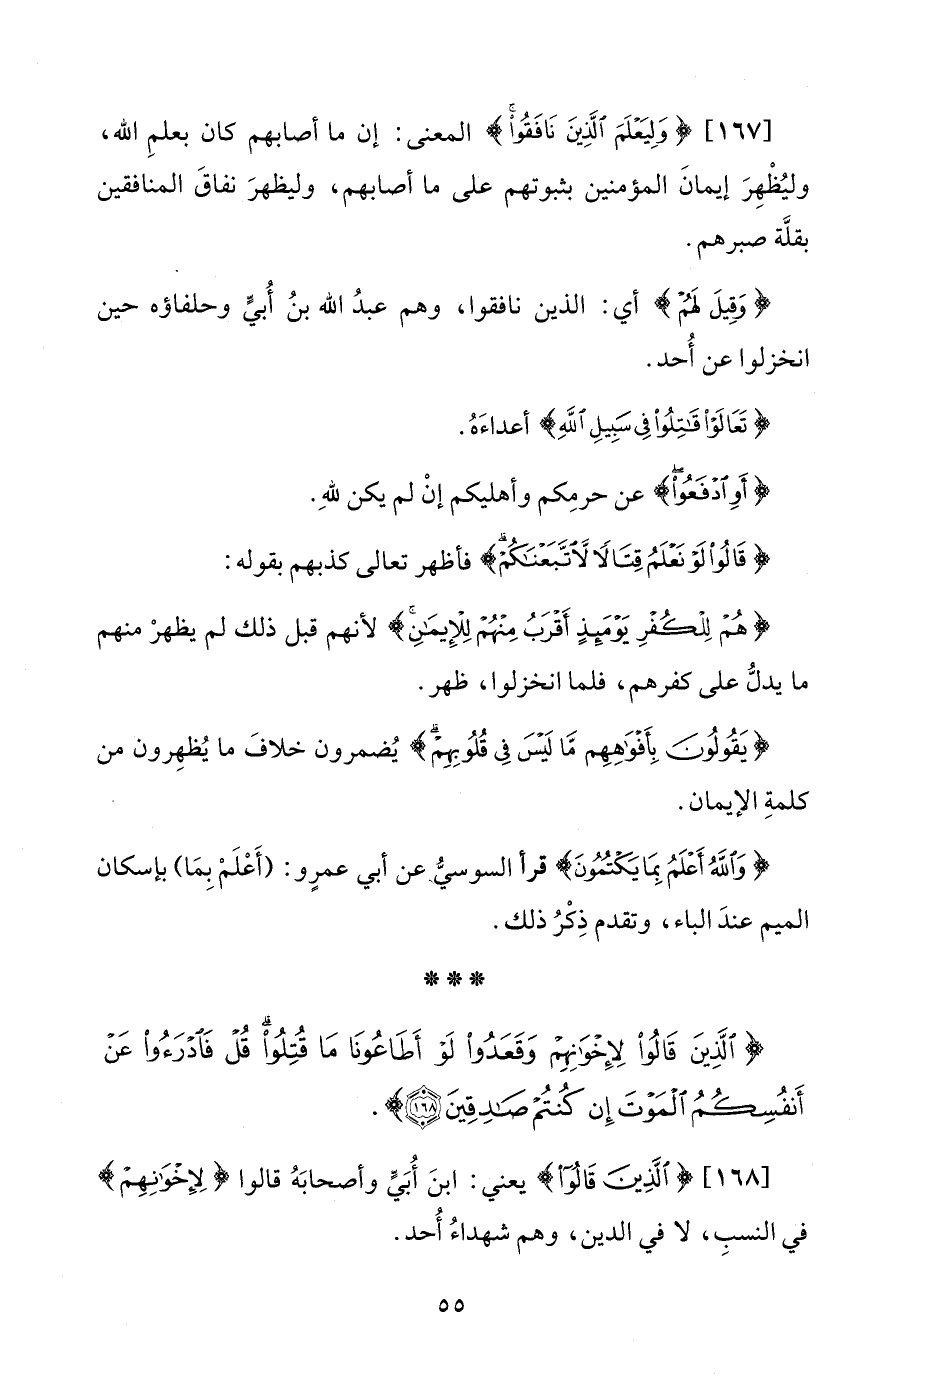 [١٦٧] ﴿ وَلِيَعْلَمَ ٱلَّذِينَ نَافَقُوا۟ۚ ﴾ المعنى: إن ما أصابهم كان بعلمِ الله،
وليُظْهِرَ إيمانَ المؤمنين بثبوتهم على ما أصابهم، وليظهرَ نفاقَ المنافقين
بقلَّة صبرهم.
﴿ وَقِيلَ لَهُمْ ﴾ أي: الذين نافقوا، وهم عبدُ الله بنُ أُبيٍّ وحلفاؤه حين
انخزلوا عن أُحد.
﴿ تَعَالَوْا۟ قَـٰتِلُوا۟ فِى سَبِيلِ ٱللَّهِ ﴾ أعداءَهُ.
﴿ أَوِ ٱدْفَعُوا۟ۖ ﴾ عن حرمِكم وأهليكم إنْ لم يكن للهِ.
﴿ قَالُوا۟ لَوْ نَعْلَمُ قِتَالًا لَّٱتَّبَعْنَـٰكُمْۗ ﴾ فأظهر تعالى كذبهم بقوله:
﴿ هُمْ لِلْكُفْرِ يَوْمَئِذٍ أَقْرَبُ مِنْهُمْ لِلْإِيمَـٰنِۚ ﴾ لأنهم قبل ذلك لم يظهرْ منهم
ما يدلُّ على كفرهم، فلما انخزلوا، ظهر.
﴿ يَقُولُونَ بِأَفْوَٰهِهِم مَّا لَيْسَ فِى قُلُوبِهِمْۗ ﴾ يُضمرون خلافَ ما يُظهِرون من
كلمةِ الإيمان.
﴿ وَٱللَّهُ أَعْلَمُ بِمَا يَكْتُمُونَ ﴾ قرأ السوسيُّ عن أبي عمرٍو: (أَعْلَمْ بِمَا) بإسكان
الميم عندَ الباء، وتقدم ذِكْرُ ذلك.
***
﴿ ٱلَّذِينَ قَالُوا۟ لِإِخْوَٰنِهِمْ وَقَعَدُوا۟ لَوْ أَطَاعُونَا مَا قُتِلُوا۟ۗ قُلْ فَٱدْرَءُوا۟ عَنْ
أَنفُسِكُمُ ٱلْمَوْتَ إِن كُنتُمْ صَـٰدِقِينَ ١٦٨ ﴾.
[١٦٨] ﴿ ٱلَّذِينَ قَالُوا۟ ﴾ يعني: ابنَ أُبَيٍّ وأصحابَهُ قالوا ﴿ لِإِخْوَٰنِهِمْ ﴾
في النسبِ، لا في الدين، وهم شهداءُ أُحد.
٥٥